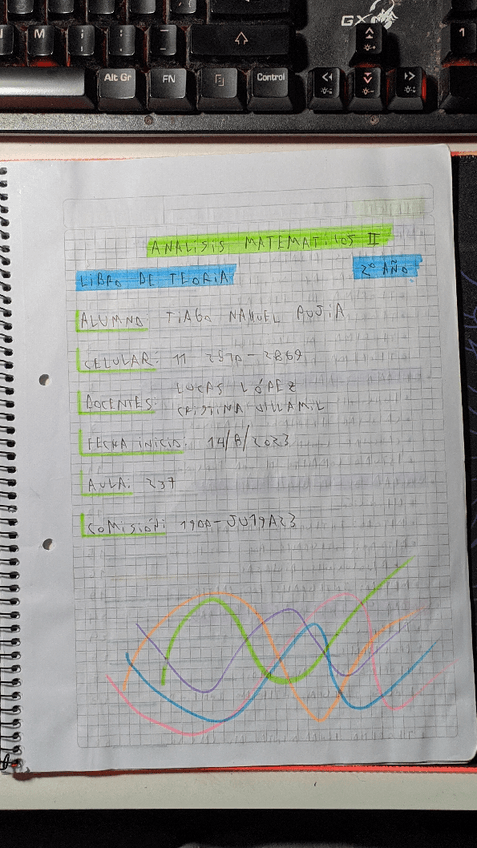 GX
M
Alt Gr
FN
Control
1
ANALISIS MATEMATICOS II
LIBRO DE TEORIA
2° AÑO
ALUMNO: TIAGO NAHUEL
CELULAR: 11
DOCENTES: LUCAS LÓPEZ
CRISTINA VILLAMIL
FECHA INICIO: 14/8/2023
AULA: 237
COMISIÓN: